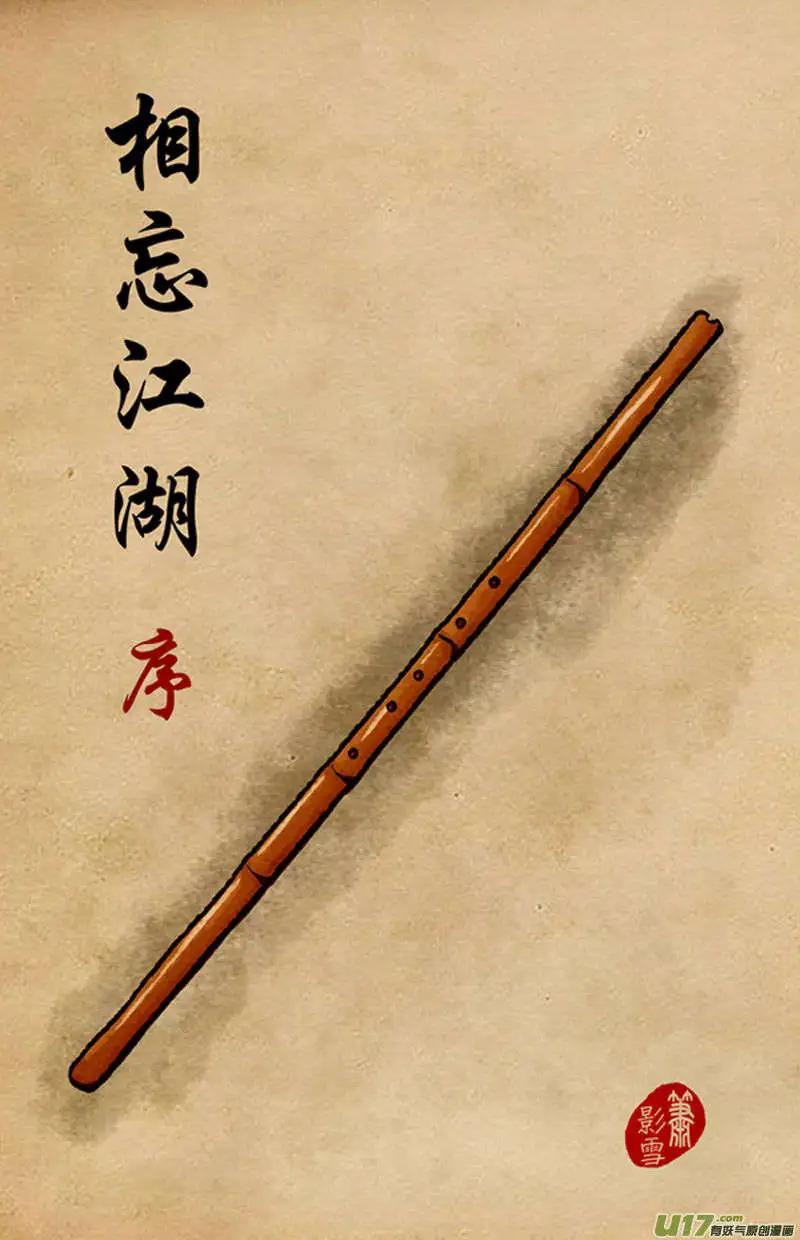 相忘江湖
序
箫
影雪
U17.com
有妖气原创漫画